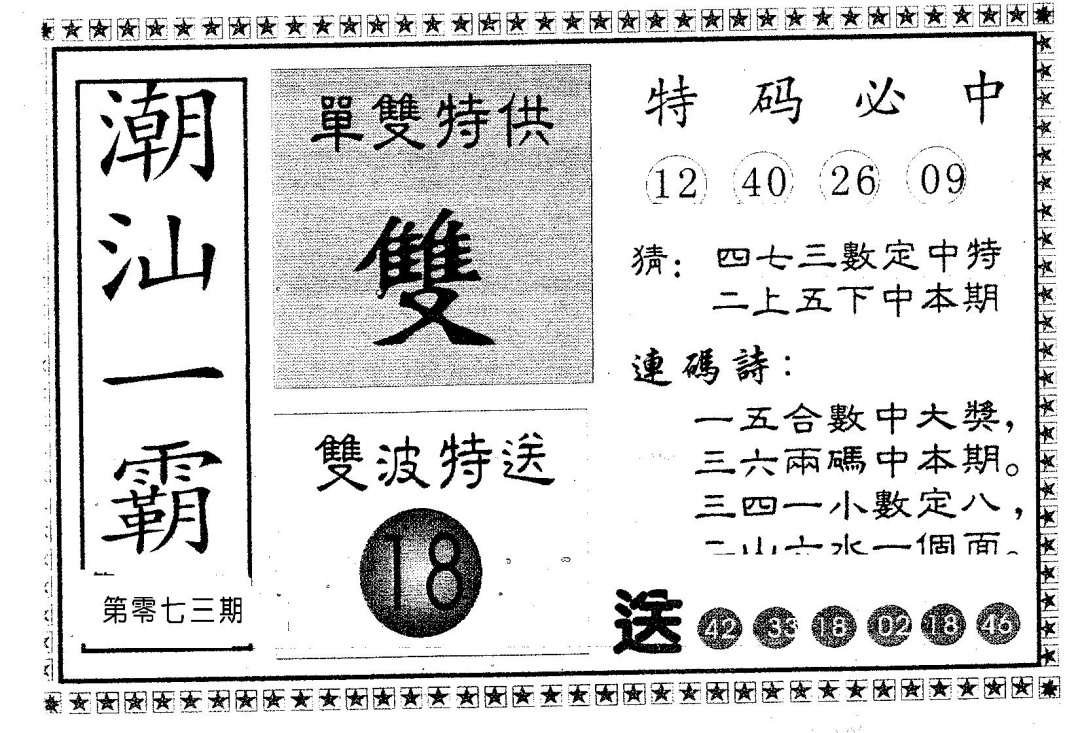 潮汕一霸
第零七三期
單雙特供
雙
雙波特送
18
特码必中
12 40 26 09
猜：四七三數定中特
二上五下中本期
連碼詩：
一五合數中大獎，
三六兩碼中本期。
三四一小數定八，
二山六水一個面。
送 42 33 18 02 18 46